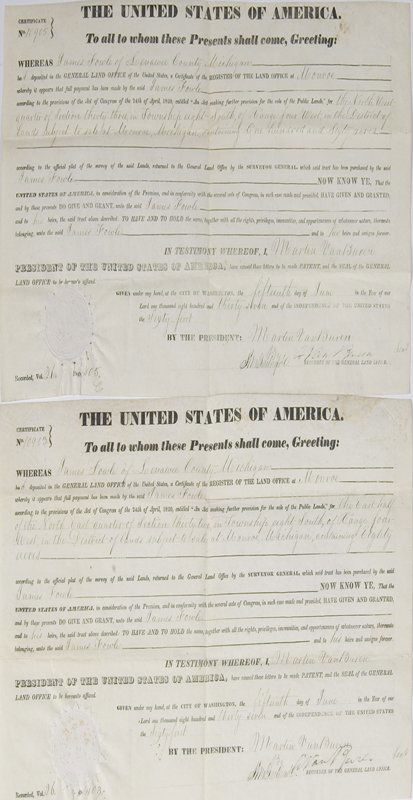 THE UNITED STATES OF AMERICA.
CERTIFICATE
No
To all to whom these Presents shall come, Greeting:
WHEREAS James Fowle of Lenawee County Michigan
ha deposited in the GENERAL LAND OFFICE of the United States, a Certificate of the REGISTER OF THE LAND OFFICE at Monroe
whereby it appears that full payment has been made by the said James Fowle
according to the provisions of the Act of Congress of the 24th of April, 1820, entitled "An Act making further provision for the sale of the Public Lands," for The North West
quarter of Section thirty three, in Township eight South, of Range four West in the District of
Lands subject to sale at Monroe, Michigan, containing One hundred and Sixty acres
according to the official plat of the survey of the said Lands, returned to the General Land Office by the SURVEYOR GENERAL, which said tract has been purchased by the said
James Fowle NOW KNOW YE, That the
UNITED STATES OF AMERICA, in consideration of the Premises, and in conformity with the several acts of Congress, in such case made and provided, HAVE GIVEN AND GRANTED,
and by these presents DO GIVE AND GRANT, unto the said James Fowle
and to his heirs, the said tract above described: TO HAVE AND TO HOLD the same, together with all the rights, privileges, immunities, and appurtenances of whatsoever nature, thereunto
belonging, unto the said James Fowle and to his heirs and assigns forever.
IN TESTIMONY WHEREOF, I, Martin Van Buren
PRESIDENT OF THE UNITED STATES OF AMERICA, have caused these Letters to be made PATENT, and the SEAL of the GENERAL
LAND OFFICE to be hereunto affixed.
GIVEN under my hand, at the CITY OF WASHINGTON, the fifteenth day of June in the Year of our
Lord one thousand eight hundred and thirty seven and of the INDEPENDENCE OF THE UNITED STATES
the Sixty first
BY THE PRESIDENT: Martin Van Buren
RECORDER OF THE GENERAL LAND OFFICE.
Recorded, Vol.
THE UNITED STATES OF AMERICA.
CERTIFICATE
No
To all to whom these Presents shall come, Greeting:
WHEREAS James Fowle of Lenawee County Michigan
ha deposited in the GENERAL LAND OFFICE of the United States, a Certificate of the REGISTER OF THE LAND OFFICE at Monroe
whereby it appears that full payment has been made by the said James Fowle
according to the provisions of the Act of Congress of the 24th of April, 1820, entitled "An Act making further provision for the sale of the Public Lands," for The East half
of the North East quarter of Section thirty two, in Township eight South, of Range four
West in the District of Lands subject to sale at Monroe, Michigan, containing Eighty
acres
according to the official plat of the survey of the said Lands, returned to the General Land Office by the SURVEYOR GENERAL, which said tract has been purchased by the said
James Fowle NOW KNOW YE, That the
UNITED STATES OF AMERICA, in consideration of the Premises, and in conformity with the several acts of Congress, in such case made and provided, HAVE GIVEN AND GRANTED,
and by these presents DO GIVE AND GRANT, unto the said James Fowle
and to his heirs, the said tract above described: TO HAVE AND TO HOLD the same, together with all the rights, privileges, immunities, and appurtenances of whatsoever nature, thereunto
belonging, unto the said James Fowle and to his heirs and assigns forever.
IN TESTIMONY WHEREOF, I, Martin Van Buren
PRESIDENT OF THE UNITED STATES OF AMERICA, have caused these Letters to be made PATENT, and the SEAL of the GENERAL
LAND OFFICE to be hereunto affixed.
GIVEN under my hand, at the CITY OF WASHINGTON, the fifteenth day of June in the Year of our
Lord one thousand eight hundred and thirty seven and of the INDEPENDENCE OF THE UNITED STATES
the Sixty first
BY THE PRESIDENT: Martin Van Buren
RECORDER OF THE GENERAL LAND OFFICE.
Recorded, Vol. 36